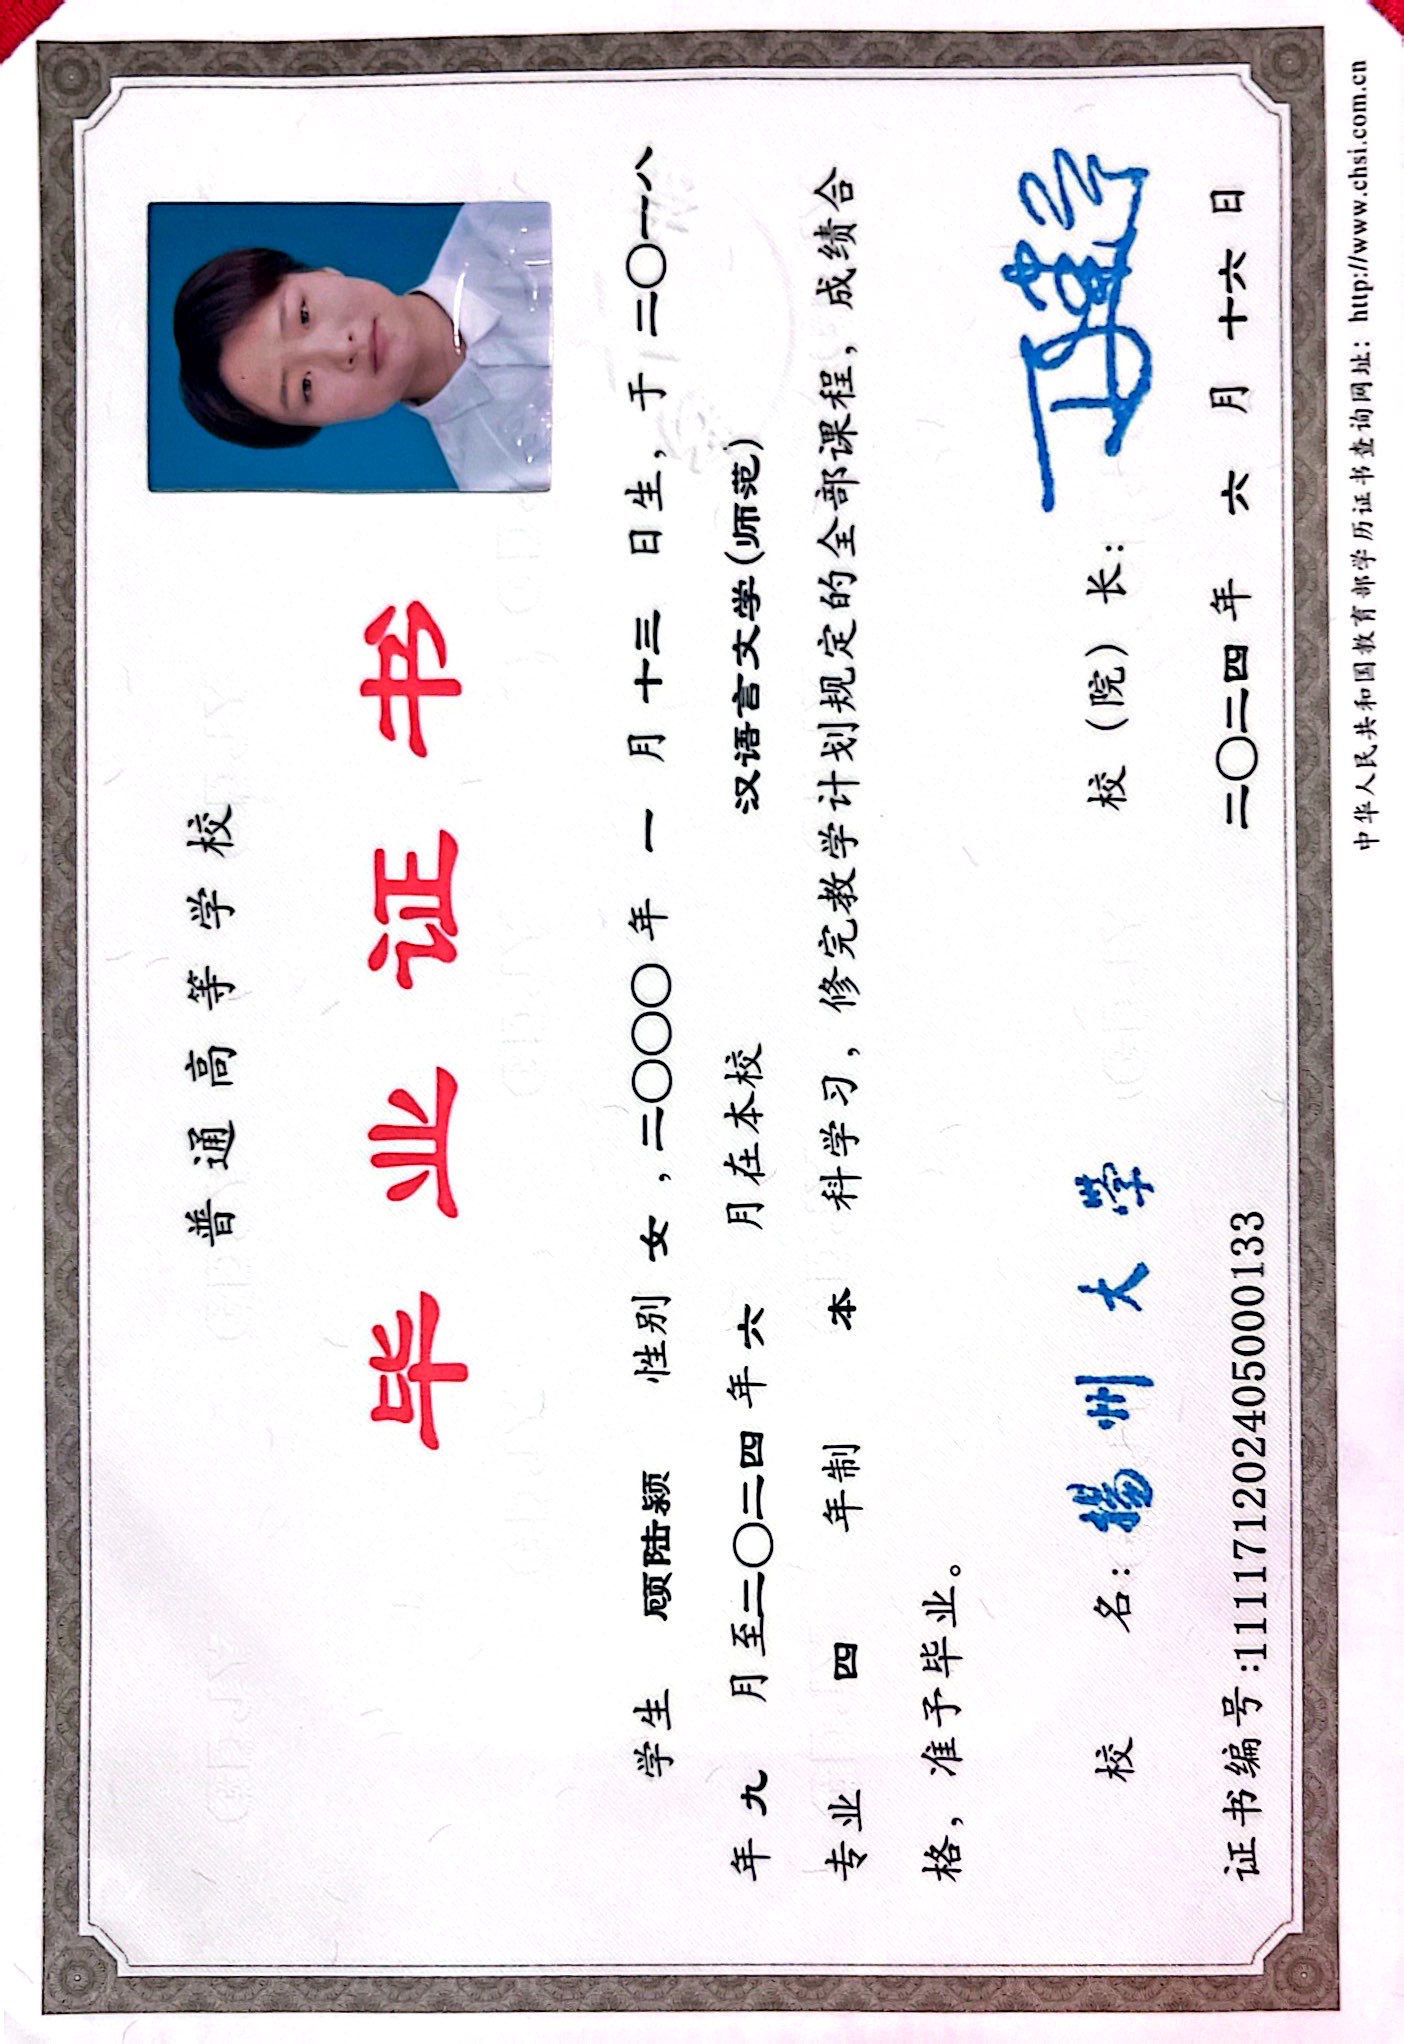 普通高等学校
毕业证书
学生 顾陆颖 性别 女，二〇〇〇年 一 月 十三 日生，于 二〇一八
年 九 月至二〇二四年 六 月在本校 汉语言文学(师范)
专业 四 年制 本 科学习，修完教学计划规定的全部课程，成绩合
格，准予毕业。
校 名：揚州大学 校（院）长：
证书编号:111171202405000133 二〇二四 年 六 月 十六 日
中华人民共和国教育部学历证书查询网址：http://www.chsi.com.cn